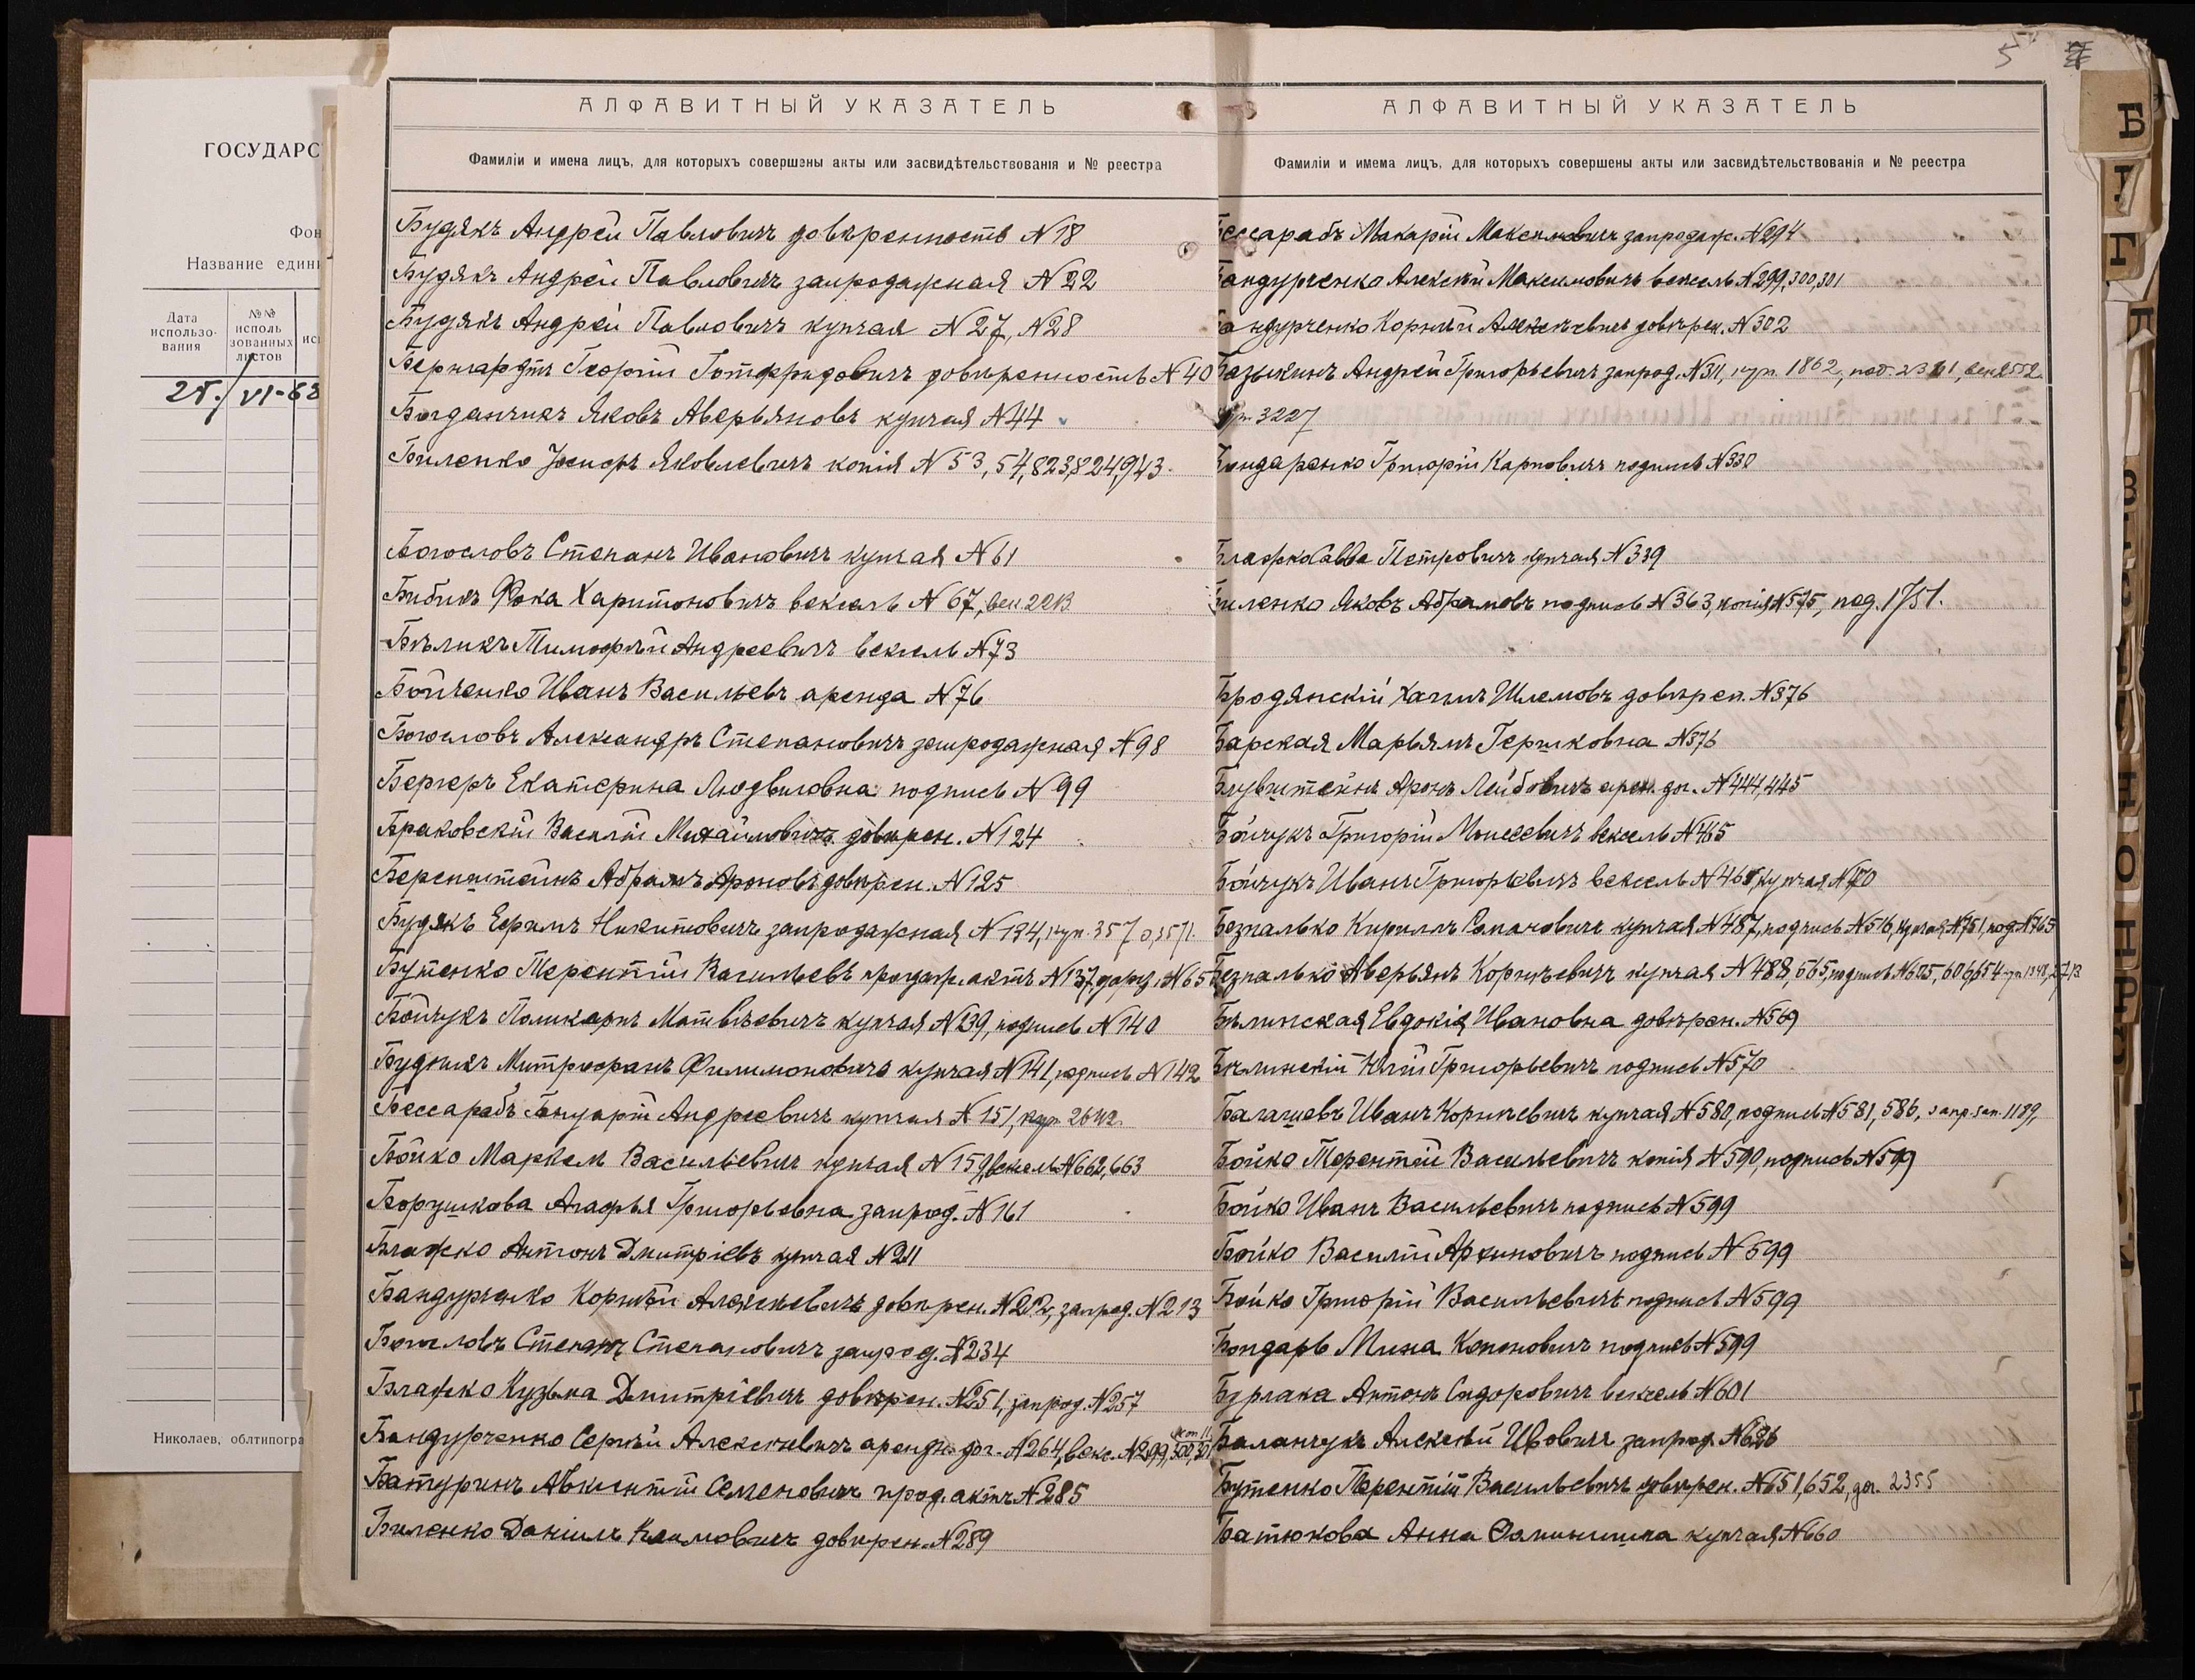 ГОСУДАРС
Фон
Название едини
Дата использо-вания
№№ исполь зованных листов
25/VI-63
Николаев, облтипогра
АЛФАВИТНЫЙ УКАЗАТЕЛЬ
Фамиліи и имена лицъ, для которыхъ совершены акты или засвидѣтельствованія и № реестра
Будякъ Андрей Павловичъ довѣренность №18
Будякъ Андрей Павловичъ запродажная №22
Будякъ Андрей Павловичъ купчая №27, №28
Бернгардтъ Георгій Готфридовичъ довѣренность №40
Богданчикъ Яковъ Аверьяновъ купчая №44
Биленко Іосифъ Яковлевичъ копія №53, 54, 823, 824, 943.
Богословъ Степанъ Ивановичъ купчая №61
Бибикъ Фока Харитоновичъ вексель №67, век.
Бѣликъ Тимофѣй Андреевичъ вексель №73
Бойченко Иванъ Васильевъ аренда №76
Богословъ Александръ Степановичъ запродажная №98
Бергеръ Екатерина Людвиговна подпись №99
Браковскій Василій Михайловичъ довѣрен. №124
Беренштейнъ Абрамъ Ароновъ довѣрен. №125
Будякъ Ефимъ Никитовичъ запродажная №134, куп. 3570, 3571.
Бутенко Терентій Васильевъ продаж. актъ №137, №65
Бойчукъ Поликарпъ Матвѣевичъ купчая №139, подпись №140
Будникъ Митрофанъ Филимоновичъ купчая №141, подпись №142
Бессарабъ Януарій Андреевичъ купчая №151, куп. 2642.
Бойко Маркелъ Васильевичъ купчая №159, вексель №662, 663
Борушкова Агафья Григорьевна запрод. №161
Блажко Антонъ Дмитріевъ купчая №211
Бандурченко Корнѣй Алексѣевичъ довѣрен. №212, запрод. №213
Богословъ Степанъ Степановичъ запрод. №234
Блажко Кузьма Дмитріевичъ довѣрен. №251, запрод. №257
Бандурченко Сергѣй Алексѣевичъ арендн. дог. №264, векс. №299, 300, 301
Батуринъ Авксентій Семеновичъ прод. актъ №285
Биленко Даніилъ Климовичъ довѣрен. №289
5
АЛФАВИТНЫЙ УКАЗАТЕЛЬ
Фамиліи и имема лицъ, для которыхъ совершены акты или засвидѣтельствованія и № реестра
Бессарабъ Макарій Максимовичъ запродаж. №294
Бандурченко Алексѣй Максимовичъ вексель №299, 300, 301
Бандурченко Корнѣй Алексѣевичъ довѣрен. №302
Базыкинъ Андрей Григорьевичъ запрод. №311, куп. 1862, век 2552
куп. 3227
Бондаренко Григорій Карповичъ подпись №330
Блажко Савва Петровичъ купчая №339
Биленко Яковъ Абрамовъ подпись №363, копія №575, под. 1751.
Бродянскій Хаимъ Шлемовъ довѣрен. №376
Барская Марьямъ Гершковна №376
Блувштейнъ Аронъ Лейбовичъ арен. дог. №444, 445
Бойчукъ Григорій Моисеевичъ вексель №465
Бойчукъ Иванъ Григорьевичъ вексель №465, купчая №470
Безпалько Кириллъ Романовичъ купчая №487, подпись №516, купчая №751, под. №765
Безпалько Аверьянъ Корнѣевичъ купчая №488, 665, подпись №605, 606, 654
Бѣлинская Евдокія Ивановна довѣрен. №569
Бѣлинскій Юлій Григорьевичъ подпись №570
Балашевъ Иванъ Корнѣевичъ купчая №580, подпись №581, 586, запр. зап. 1189,
Бойко Терентій Васильевичъ копія №590, подпись №599
Бойко Иванъ Васильевичъ подпись №599
Бойко Василій Архиповичъ подпись №599
Бойко Григорій Васильевичъ подпись №599
Бондарь Мина Кононовичъ подпись №599
Бурлака Антонъ Сидоровичъ вексель №601
Баланчукъ Алексѣй Ивовичъ запрод. №626
Бутенко Терентій Васильевичъ довѣрен. №651, 652, дог. 2355
Батюкова Анна купчая №660
Б
Г